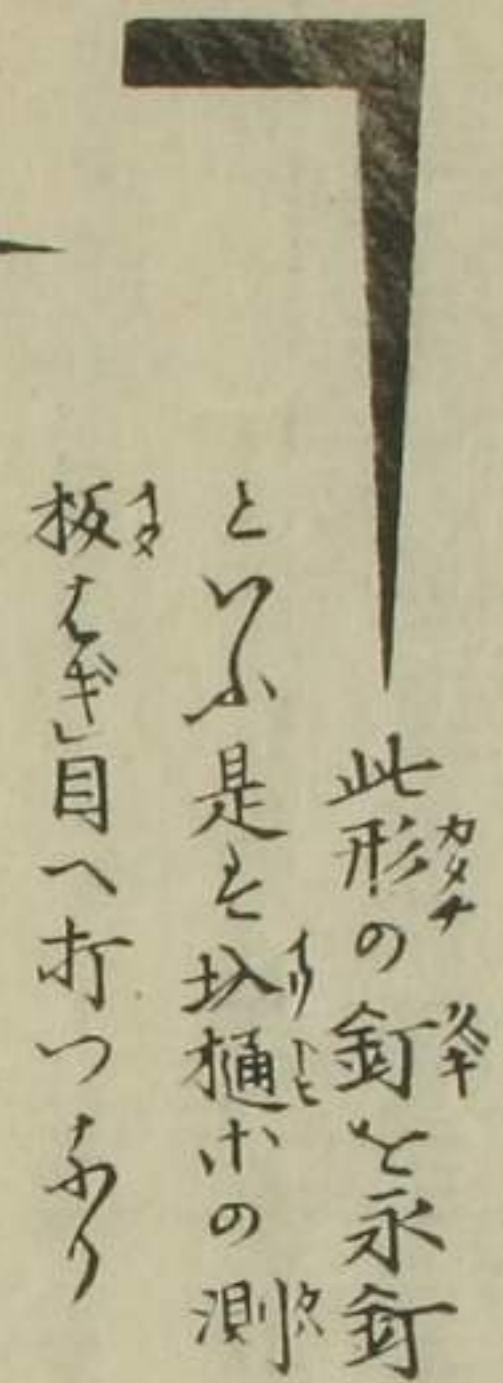 此形の釘を永釘
といふ是は圦樋ホの測
板はぎ目へ打つなり